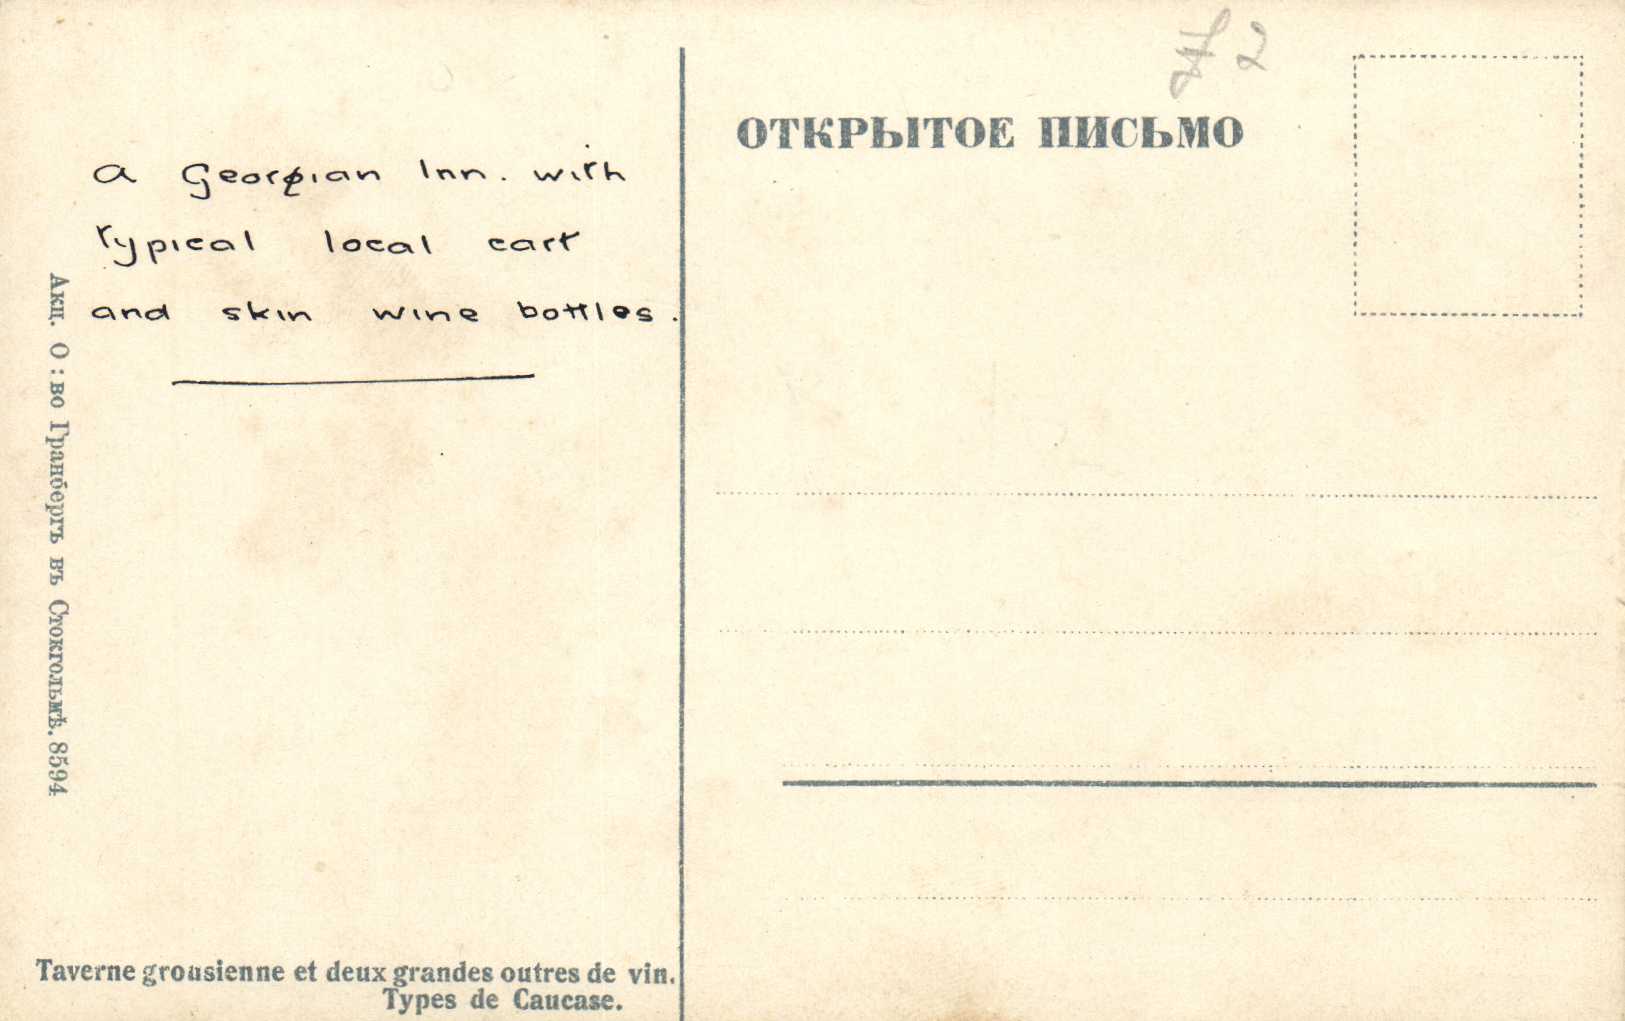 A Georgian Inn. with
typical local cart
and skin wine bottles.
Акц. О:во Гранбергъ въ Стокгольмѣ. 8594
Taverne grousienne et deux grandes outres de vin.
Types de Caucase.
2
ОТКРЫТОЕ ПИСЬМО